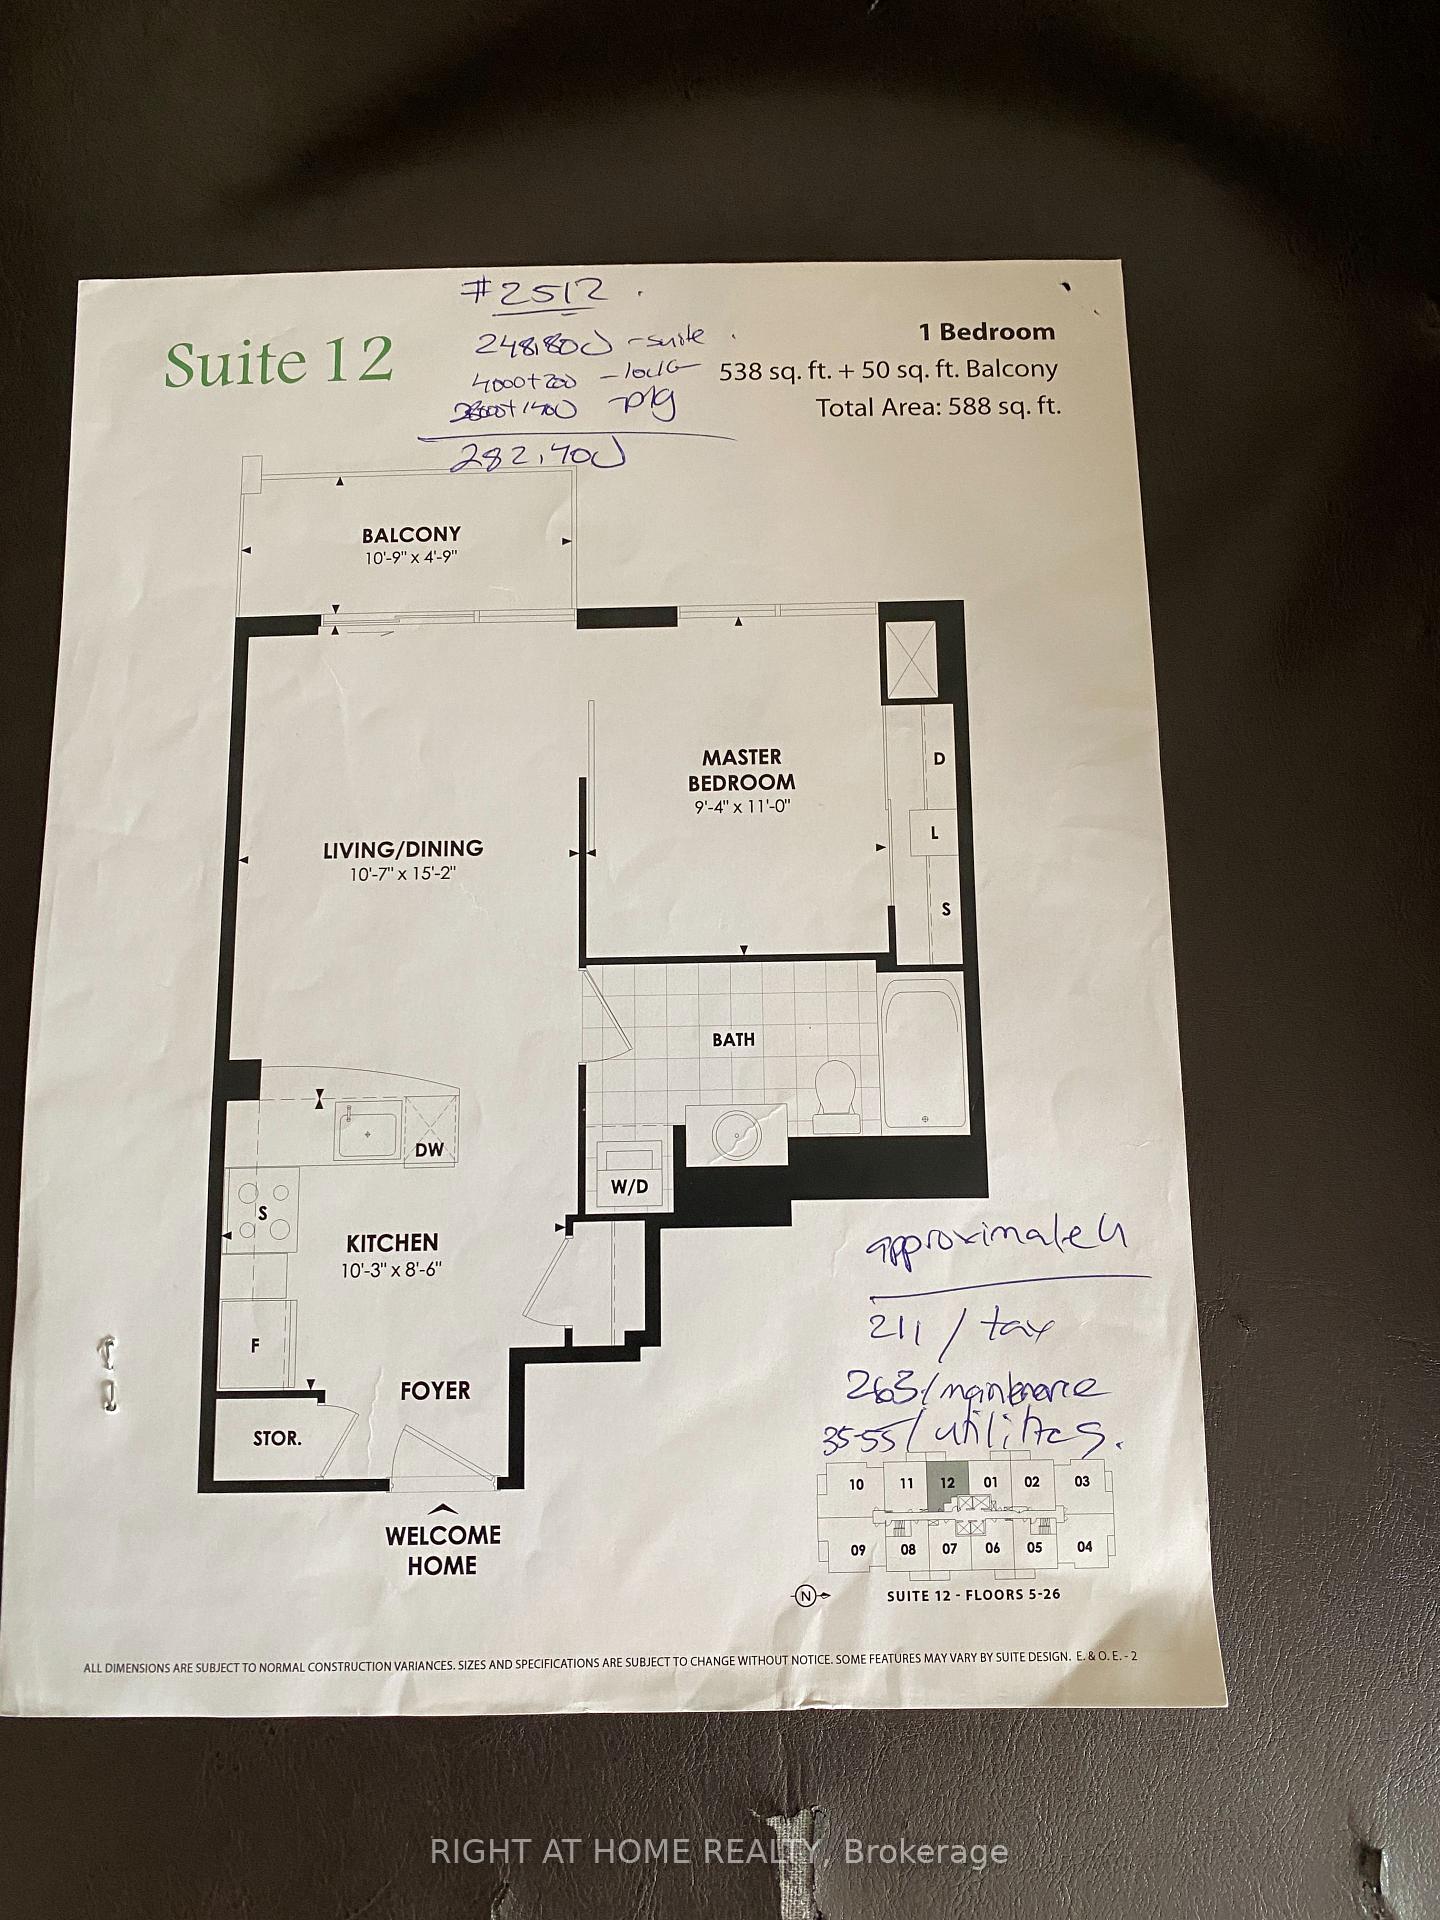 #2512
Suite 12
248,800 - suite
4000+200 - lock
+1400 - pkg
282,400
1 Bedroom
538 sq. ft. + 50 sq. ft. Balcony
Total Area: 588 sq. ft.
BALCONY
10'-9" x 4'-9"
MASTER
BEDROOM
9'-4" x 11'-0"
D
L
S
LIVING/DINING
10'-7" x 15'-2"
BATH
DW
W/D
S
KITCHEN
10'-3" x 8'-6"
F
FOYER
STOR.
WELCOME
HOME
approximately
211 / tax
263 / maintenance
35-55 / utilities.
10 11 12 01 02 03
09 08 07 06 05 04
N
SUITE 12 - FLOORS 5-26
ALL DIMENSIONS ARE SUBJECT TO NORMAL CONSTRUCTION VARIANCES. SIZES AND SPECIFICATIONS ARE SUBJECT TO CHANGE WITHOUT NOTICE. SOME FEATURES MAY VARY BY SUITE DESIGN. E. & O. E. - 2
RIGHT AT HOME REALTY, Brokerage